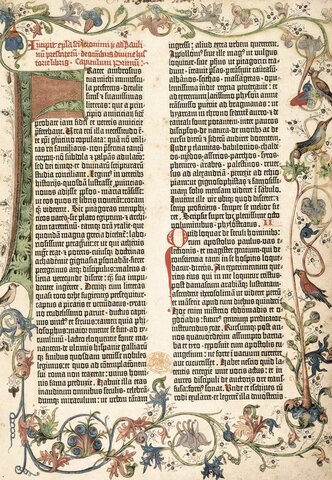 Incipit epistola sancti iheronimi ad pauli-
num presbiterum de omnibus diuine histo-
rie libris. Capitulum primum.
Frater ambrosius
tua michi munuscu-
la perferens· detulit
simul et suauissimas
litteras: que a princi-
pio amiciciarum· fidem
probate iam fidei et veteris amicicie
preferebant. Vera enim illa necessitudo est·
et christi glutino copulata: quam non utili-
tas rei familiaris· non presentia tantum
corporum· non subdola et palpans adulatio·
sed dei timor· et diuinarum scripturarum
studia conciliant. Legimus in veteribus
historijs· quosdam lustrasse prouincias·
nouos adijsse populos· maria transisse·
ut eos quos ex libris nouerant: coram
quoque viderent. Sicut pitagoras memphi-
ticos vates· sic plato egiptum· et archita
tarentinum· eandemque oram ytalie· que
quondam magna grecia dicebatur: labo-
riosissime peragrauit: et ut qui athenis
magister erat· et potens· cuiusque doctrinas
achademie gignasia personabant· fieret
peregrinus atque discipulus: malens alie-
na verecunde discere: quam sua impuden-
ter ingerere. Denique cum litteras quasi toto
orbe fugientes persequitur· captus a pyratis
et venundatus· tyranno crudelissimo
paruit· captiuus vinctus et seruus: tamen
quia philosophus· maior emente se
fuit. Ad tytum liuium· lacteo eloquentie fonte ma-
nantem· de ultimis hispanie galliarumque
finibus· quosdam venisse nobiles
legimus: et quos ad contemplationem
sui roma non traxerat: unius homi-
nis fama perduxit. Habuit illa etas
inauditum omnibus seculis· celebrandumque
ingressi: aliud extra urbem quererent.
Apollonius siue ille magus ut vulgus
loquitur· siue philosophus ut pitagorici tra-
dunt· intrauit persas· pertransiuit caucasum·
albanos· scithas· massagetas· opulentis-
sima indie regna penetrauit: et
ad extremum latissimo physon amne
transmisso peruenit ad bragmanas: ut
hyarcam in throno sedentem aureo· et de
tantali fonte potantem· inter paucos
discipulos· de natura· de moribus· ac de
cursu dierum et siderum audiret docentem.
Inde per elamitas· babilonios· chalde-
os· medos· assirios· parthos· syros·
phenices· arabes· palestinos· reuersus
ad alexandriam: perrexit ad ethiopiam·
ut gignosophistas et famosissimam
solis mensam videret in sabulo.
Inuenit ille vir ubique quod disceret: et
semper proficiens· semper se melior fie-
ret. Scripsit super hoc plenissime octo
voluminibus· phylostratus. II
Quid loquar de seculi hominibus·
cum apostolus paulus· vas e-
lectionis· et magister gentium· qui de
conscientia tanti in se hospitis loque-
batur· dicens. An experimentum que-
ritis eius qui in me loquitur cristus.
Post damascum arabiamque lustratam:
ascendit iherosolimam ut videret petrum
et mansit apud eum diebus quindecim.
Hoc enim misterio ebdomadis et ogdo-
adis: futurus gentium predicator
instruendus erat. Rursumque post an-
nos quatuordecim assumpto barna-
ba et tyto· exposuit cum apostolis eu-
uangelium: ne forte in vacuum curre-
ret aut cucurrisset. Habet nescio quid la-
tentis energie· viue uocis actus: et in
aures discipuli de auctoris ore trans-
fusa: fortius sonat. Unde et eschines cum
rodi exularet· et legeretur illa demosthe-